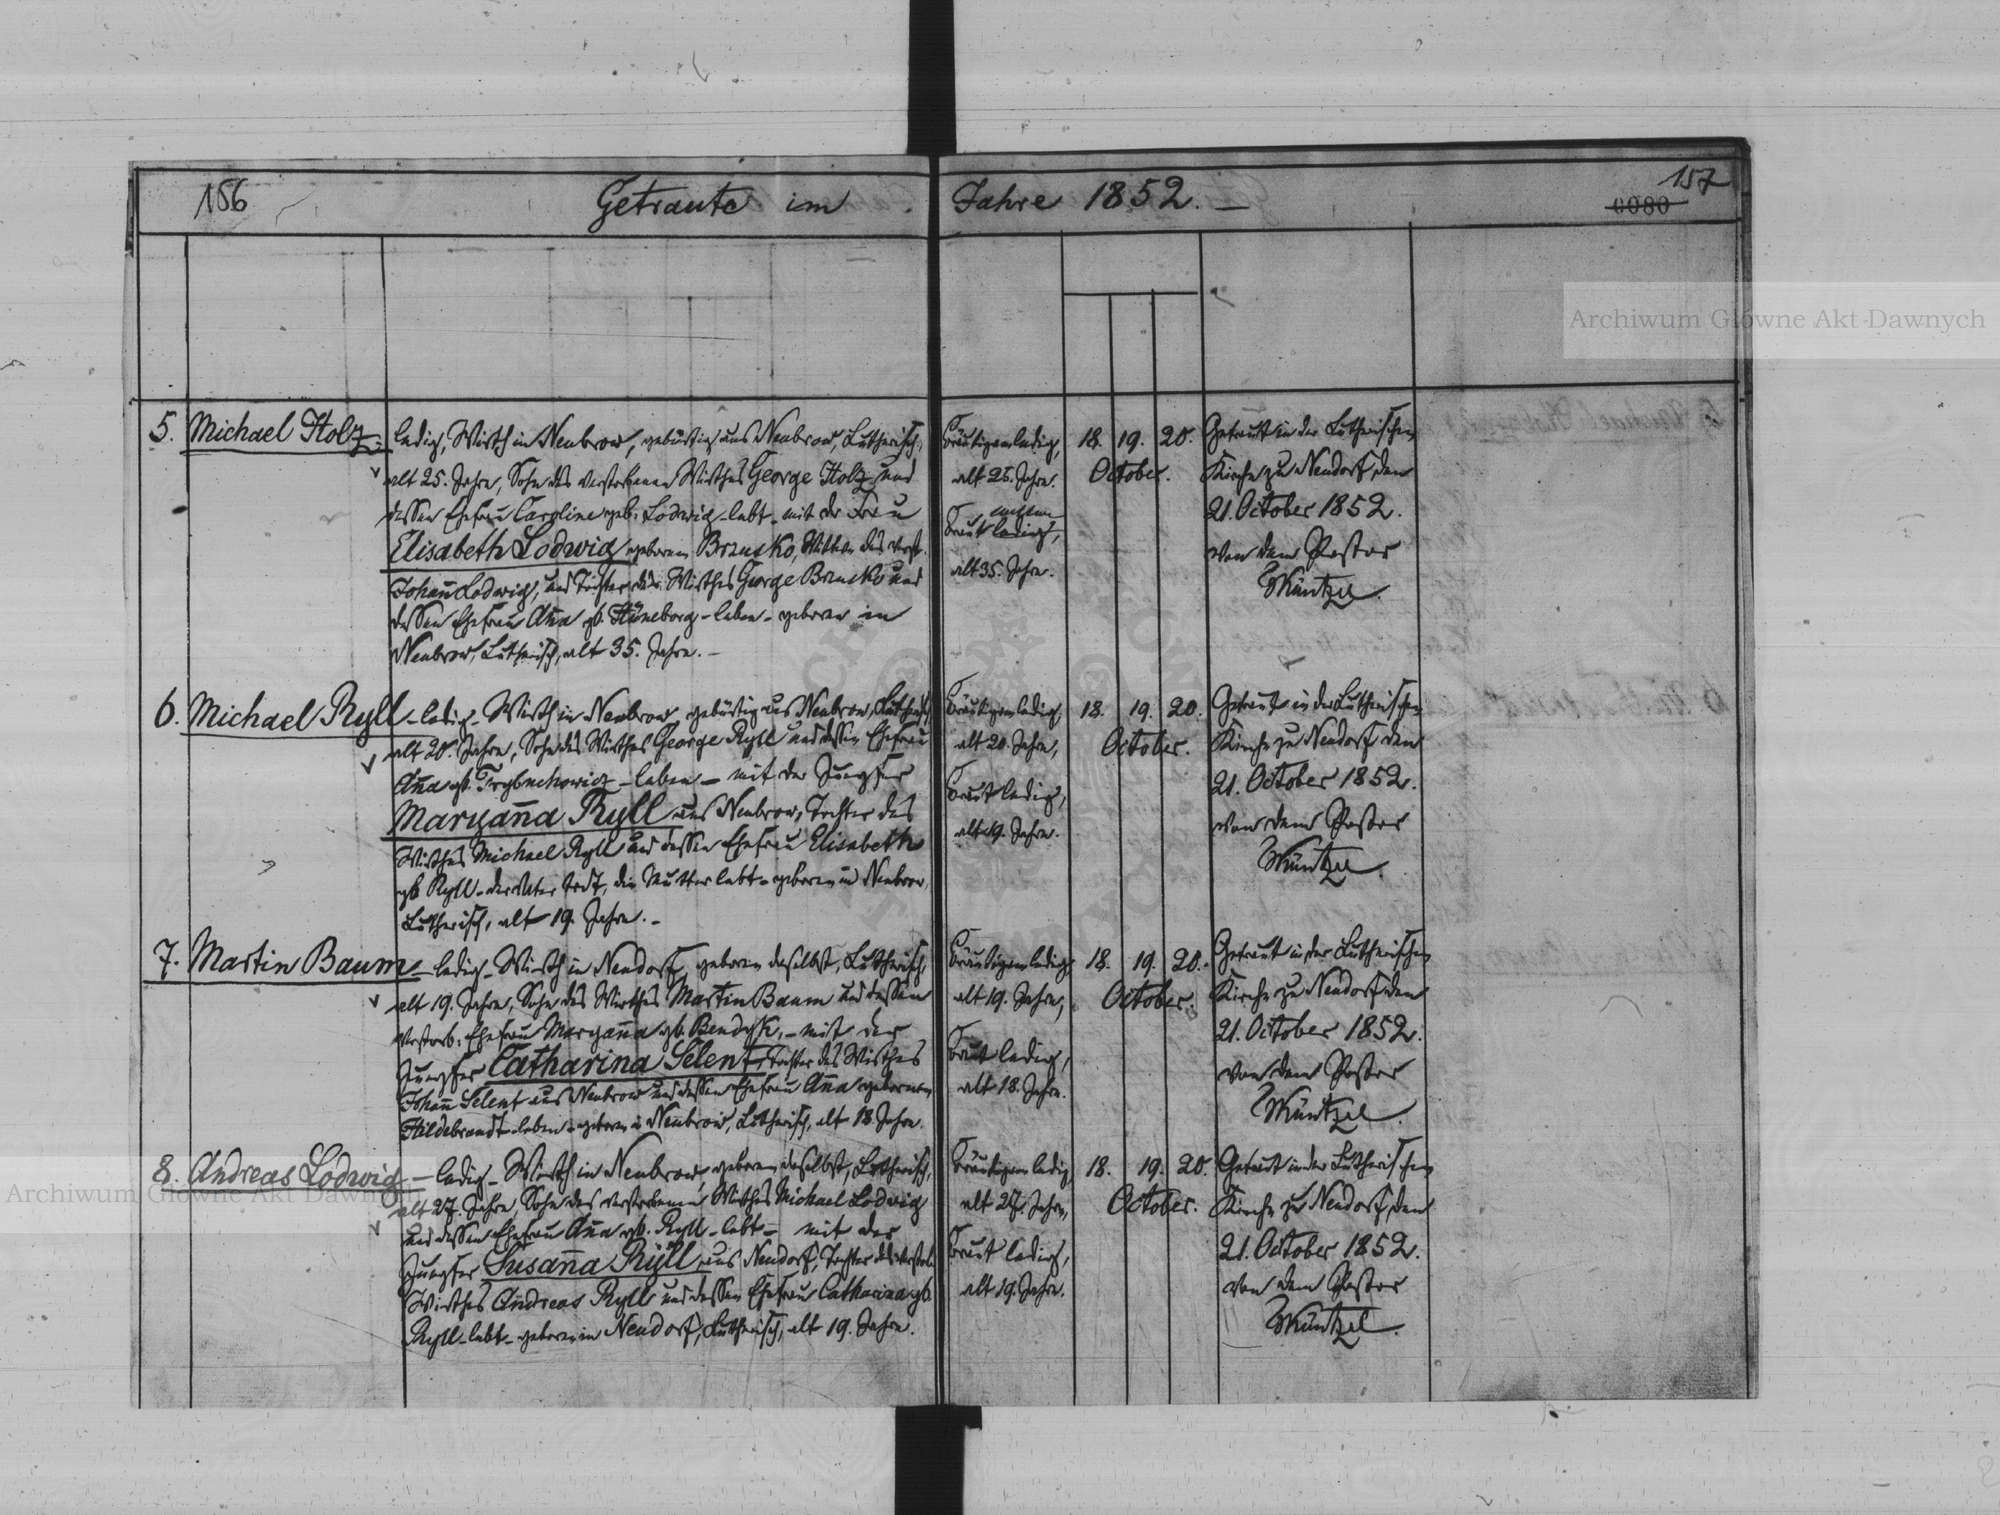 156
Getraute im Jahre 1852. —
157
0080
Archiwum Główne Akt Dawnych
5. Michael Holz,
ledig, Wirth in Neubrow, gebürtig aus Neubrow, Lutherisch,
alt 25. Jahre, Sohn des verstorbenen Wirthes George Holz und
dessen Ehefrau Caroline geb: Lodwig - lebt - mit der Frau
Elisabeth Lodwig geborene Brzusko, Wittwe des verst.
Johañ Lodwig, und Tochter des Wirthes George Brzusko und
dessen Ehefrau Aña gb. Hüneborg - leben - geboren in
Neubrow, Lutherisch, alt 35. Jahre. -
Bräutigam ledig,
alt 25. Jahre.
Wittwe
Braut ledig,
alt 35. Jahre.
18. 19. 20.
October.
Getraut in der Lutherischen
Kirche zu Neudorf, den
21. October 1852.
von dem Pastor
Müntzel.
6. Michael Ryll - ledig - Wirth in Neubrow gebürtig aus Neubrow, Lutherisch,
alt 20. Jahre, Sohn des Wirthes George Ryll und dessen Ehefrau
Aña gb. - leben - mit der Jungfer
Maryaña Ryll aus Neubrow, Tochter des
Wirthes Michael Ryll und dessen Ehefrau Elisabeth
gb Ryll - der Vater todt, die Mutter lebt - geboren in Neubrow,
Lutherisch, alt 19. Jahre. -
Bräutigam ledig,
alt 20. Jahre,
Braut ledig,
alt 19. Jahre.
18. 19. 20.
October.
Getraut in der Lutherischen
Kirche zu Neudorf den
21. October 1852.
von dem Pastor
Müntzel.
7. Martin Baum - ledig - Wirth in Neudorf, geboren daselbst, Lutherisch,
alt 19. Jahre, Sohn des Wirthes Martin Baum und dessen
verstorb: Ehefrau Maryaña gb. Bendyk, - mit der
Jungfer Catharina Selent, Tochter des Wirthes
Johañ Selent aus Neubrow und dessen Ehefrau Aña geborenen
Hildebrandt - leben - geboren in Neubrow, Lutherisch, alt 18. Jahre.
Bräutigam ledig,
alt 19. Jahre,
Braut ledig,
alt 18. Jahre.
18. 19. 20.
October.
Getraut in der Lutherischen
Kirche zu Neudorf den
21. October 1852.
von dem Pastor
Müntzel.
8. Andreas Lodwig - ledig - Wirth in Neubrow, geboren daselbst, Lutherisch,
alt 27. Jahre, Sohn des verstorbenen Wirthes Michael Lodwig
und dessen Ehefrau Aña gb. Ryll - lebt - mit der
Jungfer Susaña Ryll aus Neudorf, Tochter des verstorb.
Wirthes Andreas Ryll und dessen Ehefrau Catharina gb
Ryll - lebt - geboren in Neudorf, Lutherisch, alt 19. Jahre.
Bräutigam ledig,
alt 27. Jahre,
Braut ledig,
alt 19. Jahre.
18. 19. 20.
October.
Getraut in der Lutherischen
Kirche zu Neudorf, den
21. October 1852.
von dem Pastor
Müntzel.
Archiwum Główne Akt Dawnych